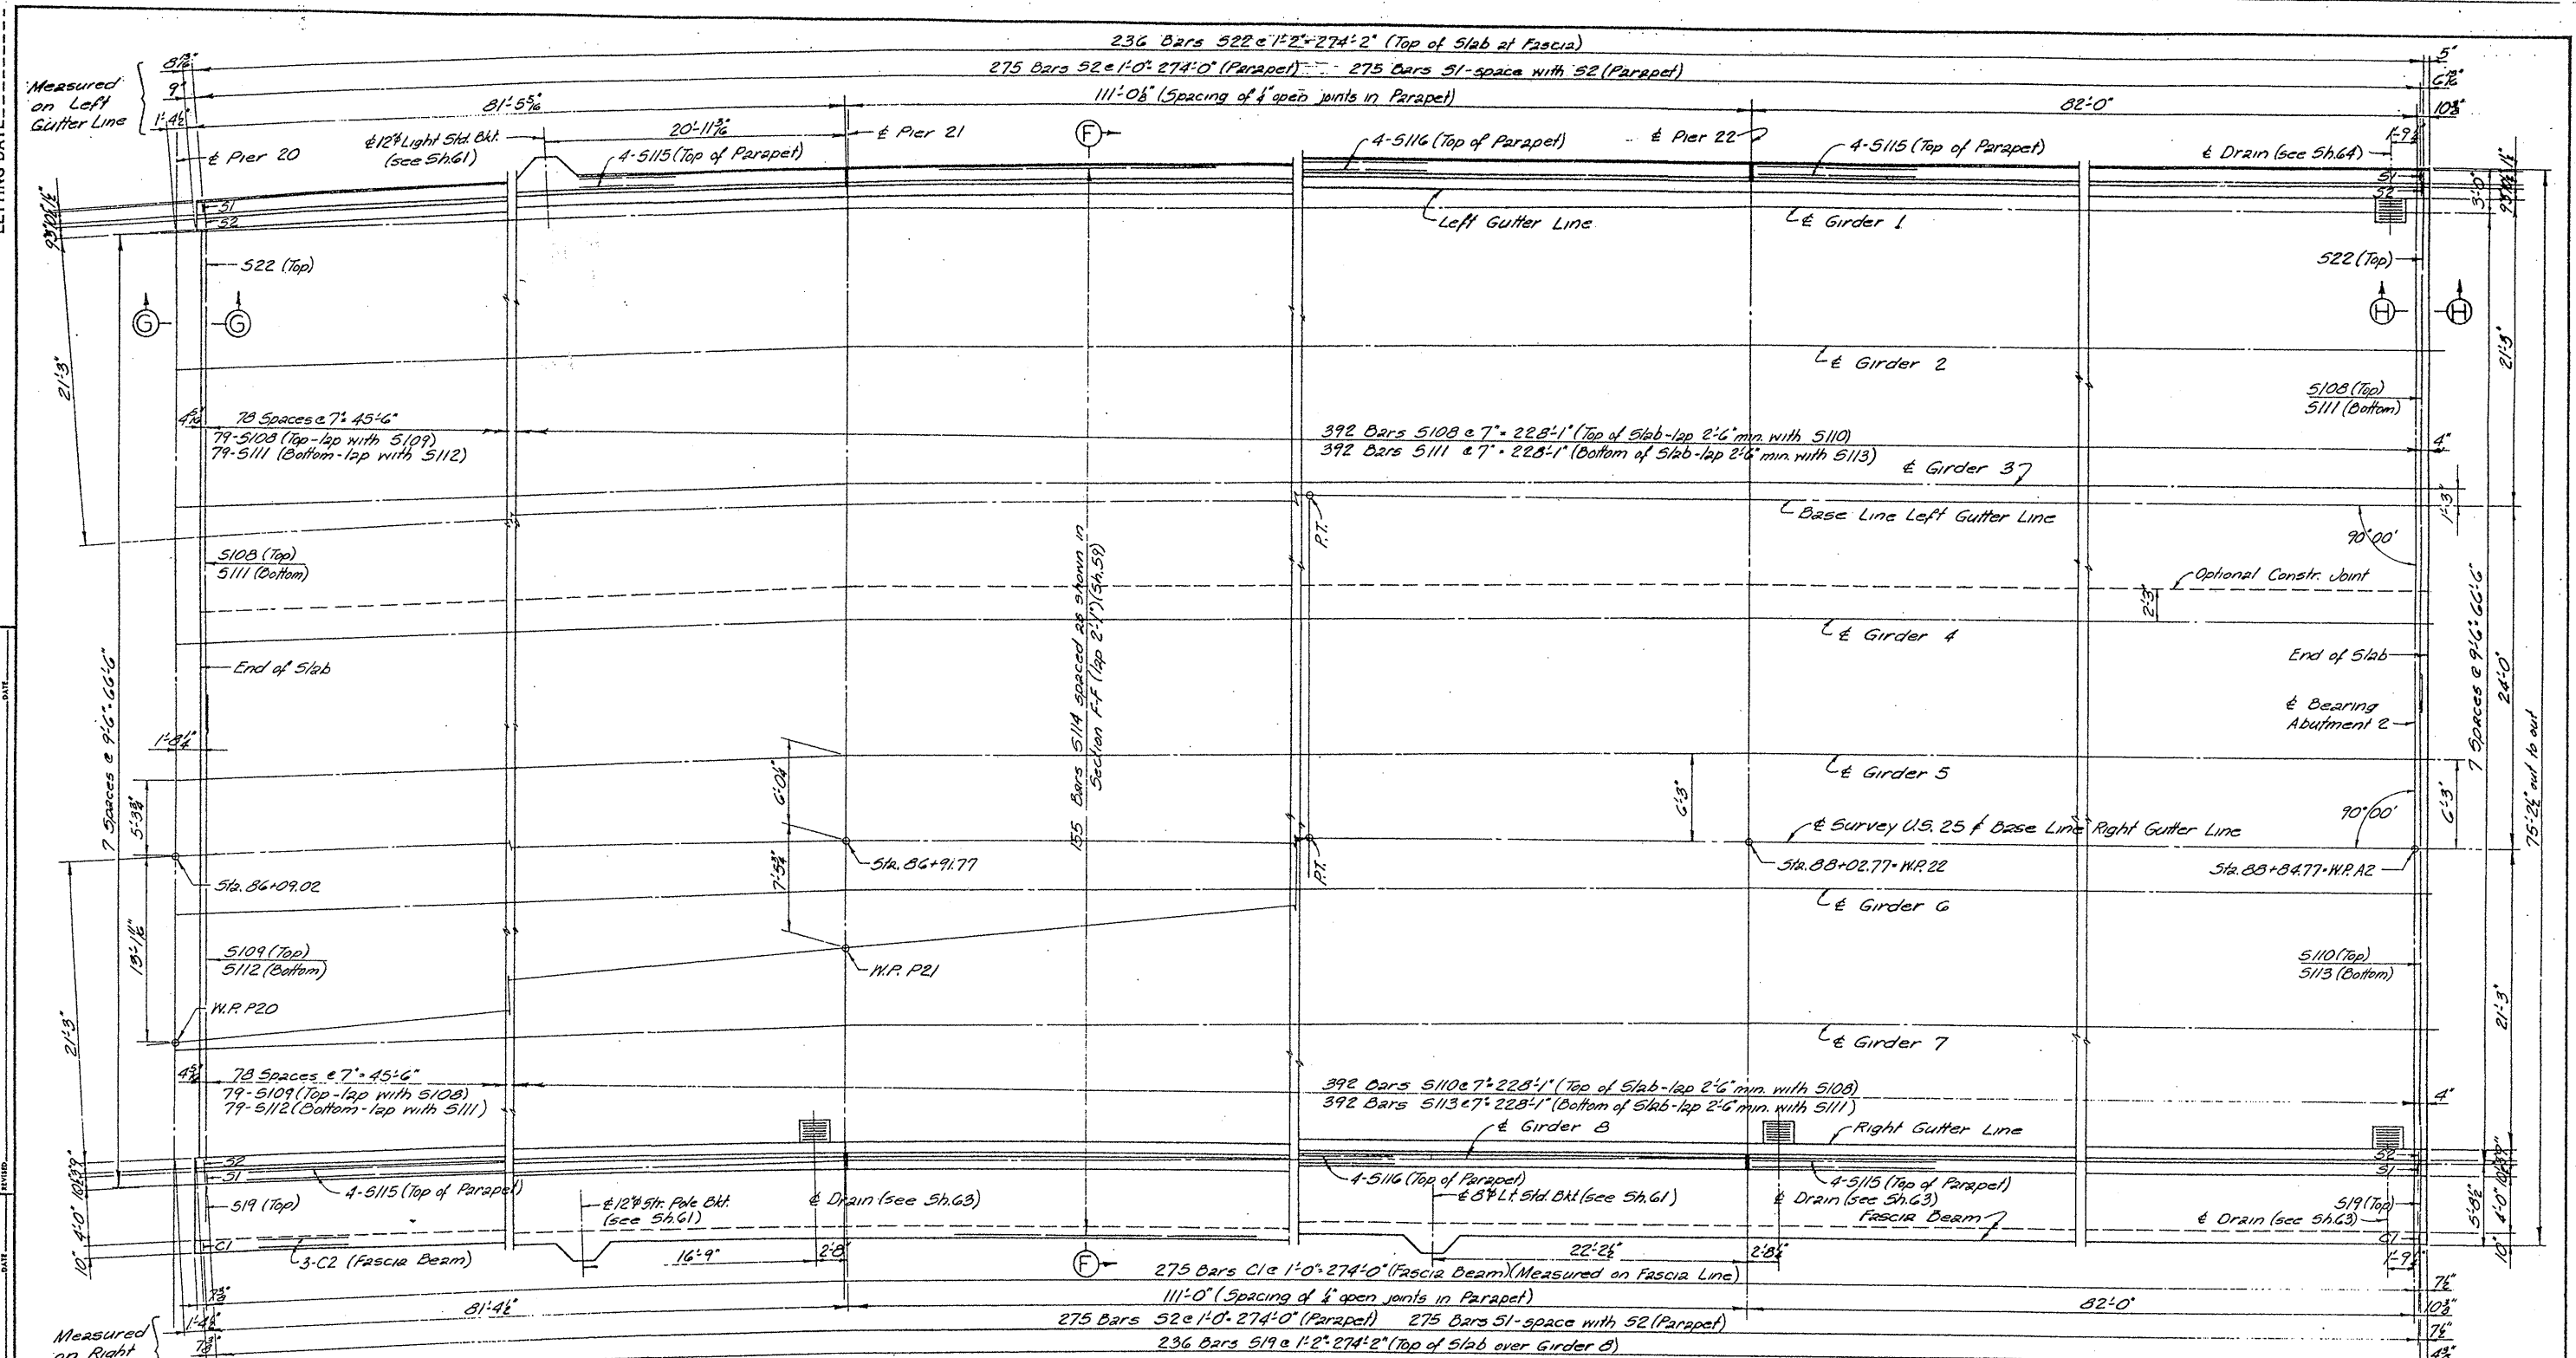 236 Bars S22 @ 1'-2" = 274'-2" (Top of Slab at Fascia)
275 Bars S2 @ 1'-0" = 274'-0" (Parapet) 275 Bars S1-space with S2 (Parapet)
111'-0⅛" (Spacing of ¼" open joints in Parapet)
Measured
on Left
Gutter Line
9"
1'-4½"
81'-5 5/16"
82'-0"
5"
10⅜"
20'-11 3/16"
℄ Pier 20
℄ 12"φ Light Std. Bkt.
(see Sh.61)
4-S115 (Top of Parapet)
℄ Pier 21
F
4-S116 (Top of Parapet)
℄ Pier 22
4-S115 (Top of Parapet)
℄ Drain (see Sh.64)
S1
S2
S1
S2
3'-0"
Left Gutter Line
℄ Girder 1
S22 (Top)
S22 (Top)
G
G
H
H
21'-3"
21'-3"
℄ Girder 2
S108 (Top)
S111 (Bottom)
78 Spaces @ 7" = 45'-6"
79-S108 (Top-lap with S109)
79-S111 (Bottom-lap with S112)
392 Bars S108 @ 7" = 228'-1" (Top of Slab-lap 2'-6" min. with S110)
392 Bars S111 @ 7" = 228'-1" (Bottom of Slab-lap 2'-6" min. with S113)
4"
℄ Girder 3
1'-3"
Base Line Left Gutter Line
P.T.
90°00'
S108 (Top)
S111 (Bottom)
155 Bars S114 spaced as shown in
Section F-F (lap 2'-1") (Sh.59)
Optional Constr. Joint
2'-3"
℄ Girder 4
End of Slab
End of Slab
7 Spaces @ 9'-6" = 66'-6"
7 Spaces @ 9'-6" = 66'-6"
24'-0"
75'-2½" out to out
℄ Bearing
Abutment 2
1'-8¼"
6'-0¼"
℄ Girder 5
5'-3¾"
6'-3"
6'-3"
90°00'
℄ Survey U.S. 25 & Base Line Right Gutter Line
Sta. 86+09.02
Sta. 86+91.77
7'-5¾"
P.T.
Sta. 88+02.77 = W.P. 22
Sta. 88+84.77 = W.P. A2
℄ Girder 6
13'-1 11/16"
S109 (Top)
S112 (Bottom)
W.P. P21
S110 (Top)
S113 (Bottom)
W.P. P20
21'-3"
21'-3"
℄ Girder 7
78 Spaces @ 7" = 45'-6"
79-S109 (Top-lap with S108)
79-S112 (Bottom-lap with S111)
392 Bars S110 @ 7" = 228'-1" (Top of Slab-lap 2'-6" min. with S108)
392 Bars S113 @ 7" = 228'-1" (Bottom of Slab-lap 2'-6" min. with S111)
4"
℄ Girder 8
Right Gutter Line
S2
S1
S2
S1
4-S115 (Top of Parapet)
4-S116 (Top of Parapet)
4-S115 (Top of Parapet)
S19 (Top)
℄ 12"φ Str. Pole Bkt.
(see Sh.61)
℄ Drain (see Sh.63)
℄ 8"φ Lt. Std. Bkt (see Sh.61)
℄ Drain (see Sh.63)
Fascia Beam
S19 (Top)
℄ Drain (see Sh.63)
4'-0"
10"
5'-8½"
4'-0"
10"
C1
3-C2 (Fascia Beam)
16'-9"
2'-8"
F
22'-2½"
2'-8¼"
C1
275 Bars C1 @ 1'-0" = 274'-0" (Fascia Beam)(Measured on Fascia Line)
7½"
81'-4½"
111'-0" (Spacing of ¼" open joints in Parapet)
82'-0"
10⅜"
1'-4½"
275 Bars S2 @ 1'-0" = 274'-0" (Parapet) 275 Bars S1-space with S2 (Parapet)
7½"
Measured
on Right
236 Bars S19 @ 1'-2" = 274'-2" (Top of Slab over Girder 8)
DATE
REVISED
DATE